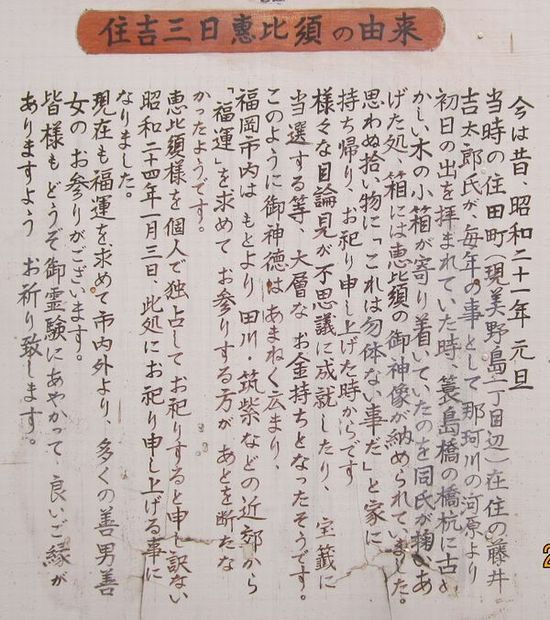 住吉三日恵比須の由来
今は昔、昭和二十一年元旦
当時の住田町(現美野島一丁目辺)在住の藤井
吉太郎氏が、毎年の事として那珂川の河原より
初日の出を拝まれていた時、簑島橋の橋杭に古め
かしい木の小箱が寄り着いていたのを同氏が掬いあ
げた処、箱には恵比須の御神像が納められていました。
思わぬ拾い物に「これは勿体ない事だ」と家に
持ち帰り、お祀り申し上げた時からです
様々な目論見が不思議に成就したり、宝籤に
当選する等、大層なお金持ちとなったそうです。
このように御神徳はあまねく広まり、
福岡市内はもとより田川・筑紫などの近郊から
「福運」を求めてお参りする方があとを断たな
かったようです。
恵比須様を個人で独占してお祀りすると申し訳ない
昭和二十四年一月三日、此処にお祀り申し上げる事に
なりました。
現在も福運を求めて市内外より、多くの善男善
女のお参りがございます。
皆様もどうぞ御霊験にあやかって良いご縁が
ありますようお祈り致します。